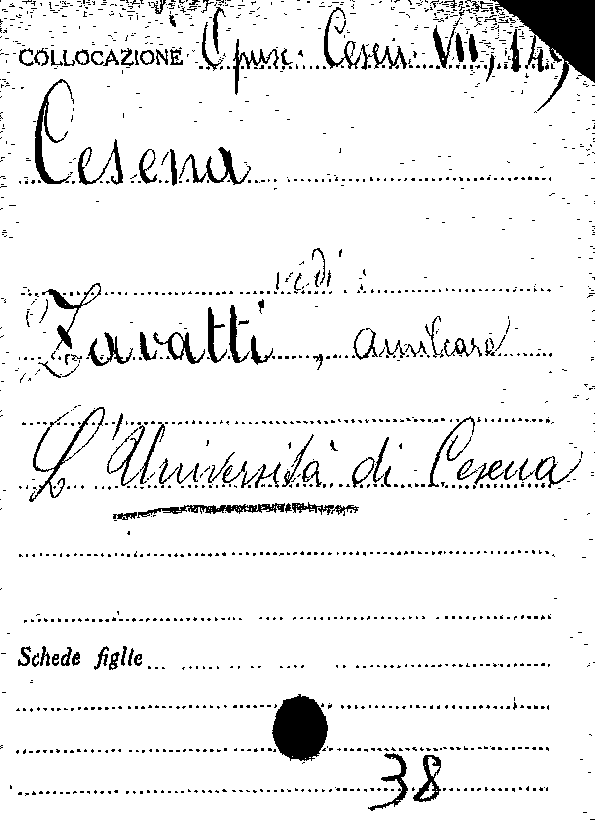 COLLOCAZIONE Opusc. Cesen. VII, 149
Cesena
vedi:
Zavatti, Amilcare
L'Università di Cesena
Schede figlie
38